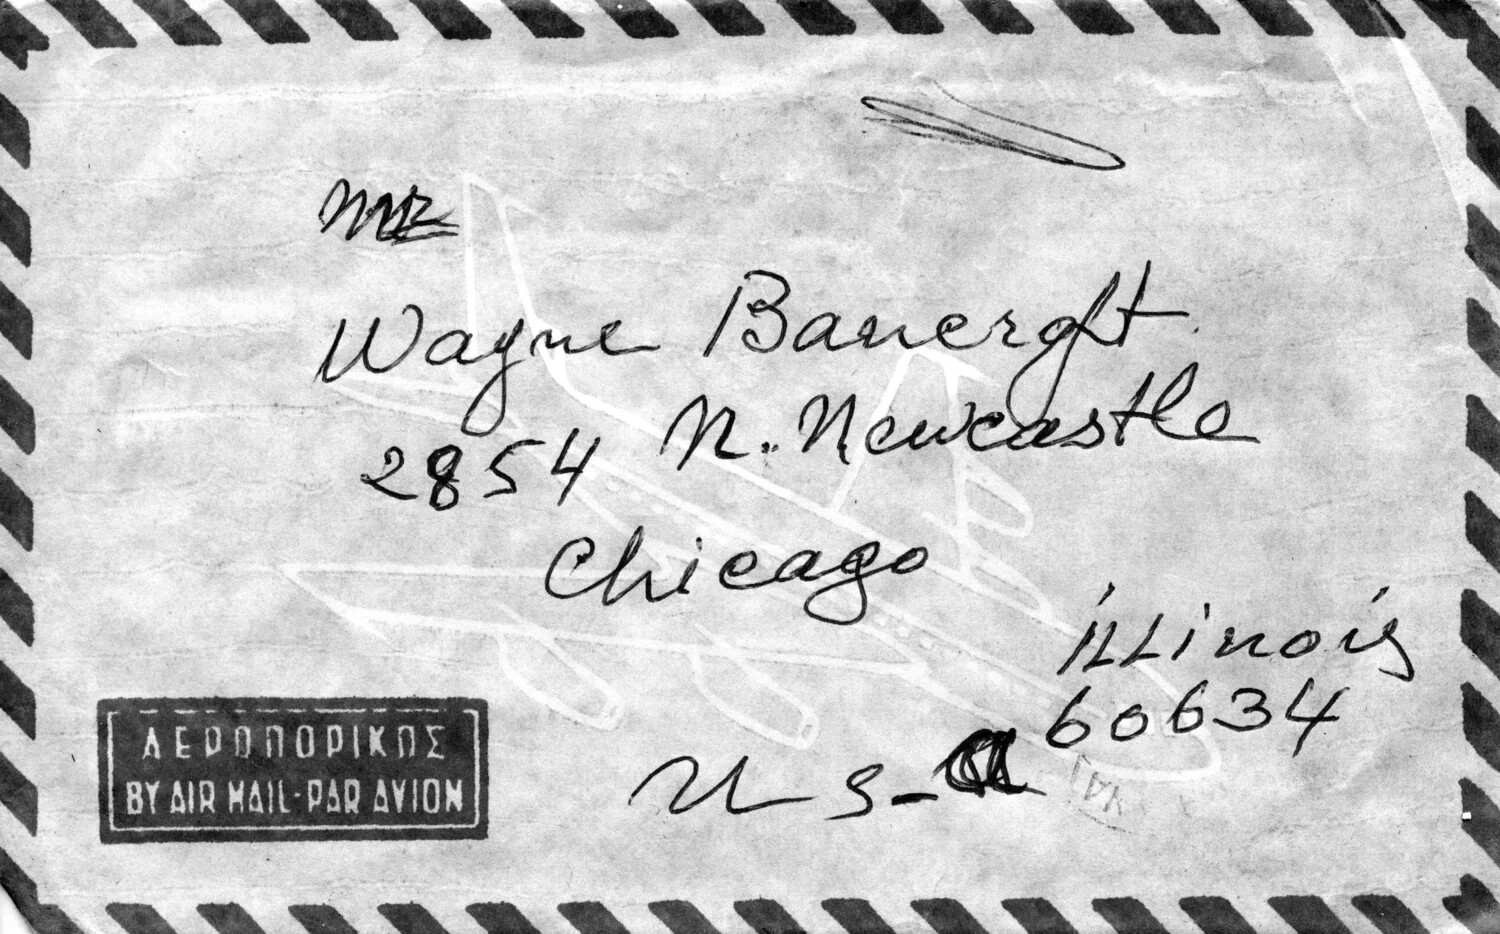 Mr
Wayne Bancroft
2854 N. Newcastle
Chicago
Illinois
60634
U S-A
ΑΕΡΟΠΟΡΙΚΩΣ
BY AIR MAIL-PAR AVION